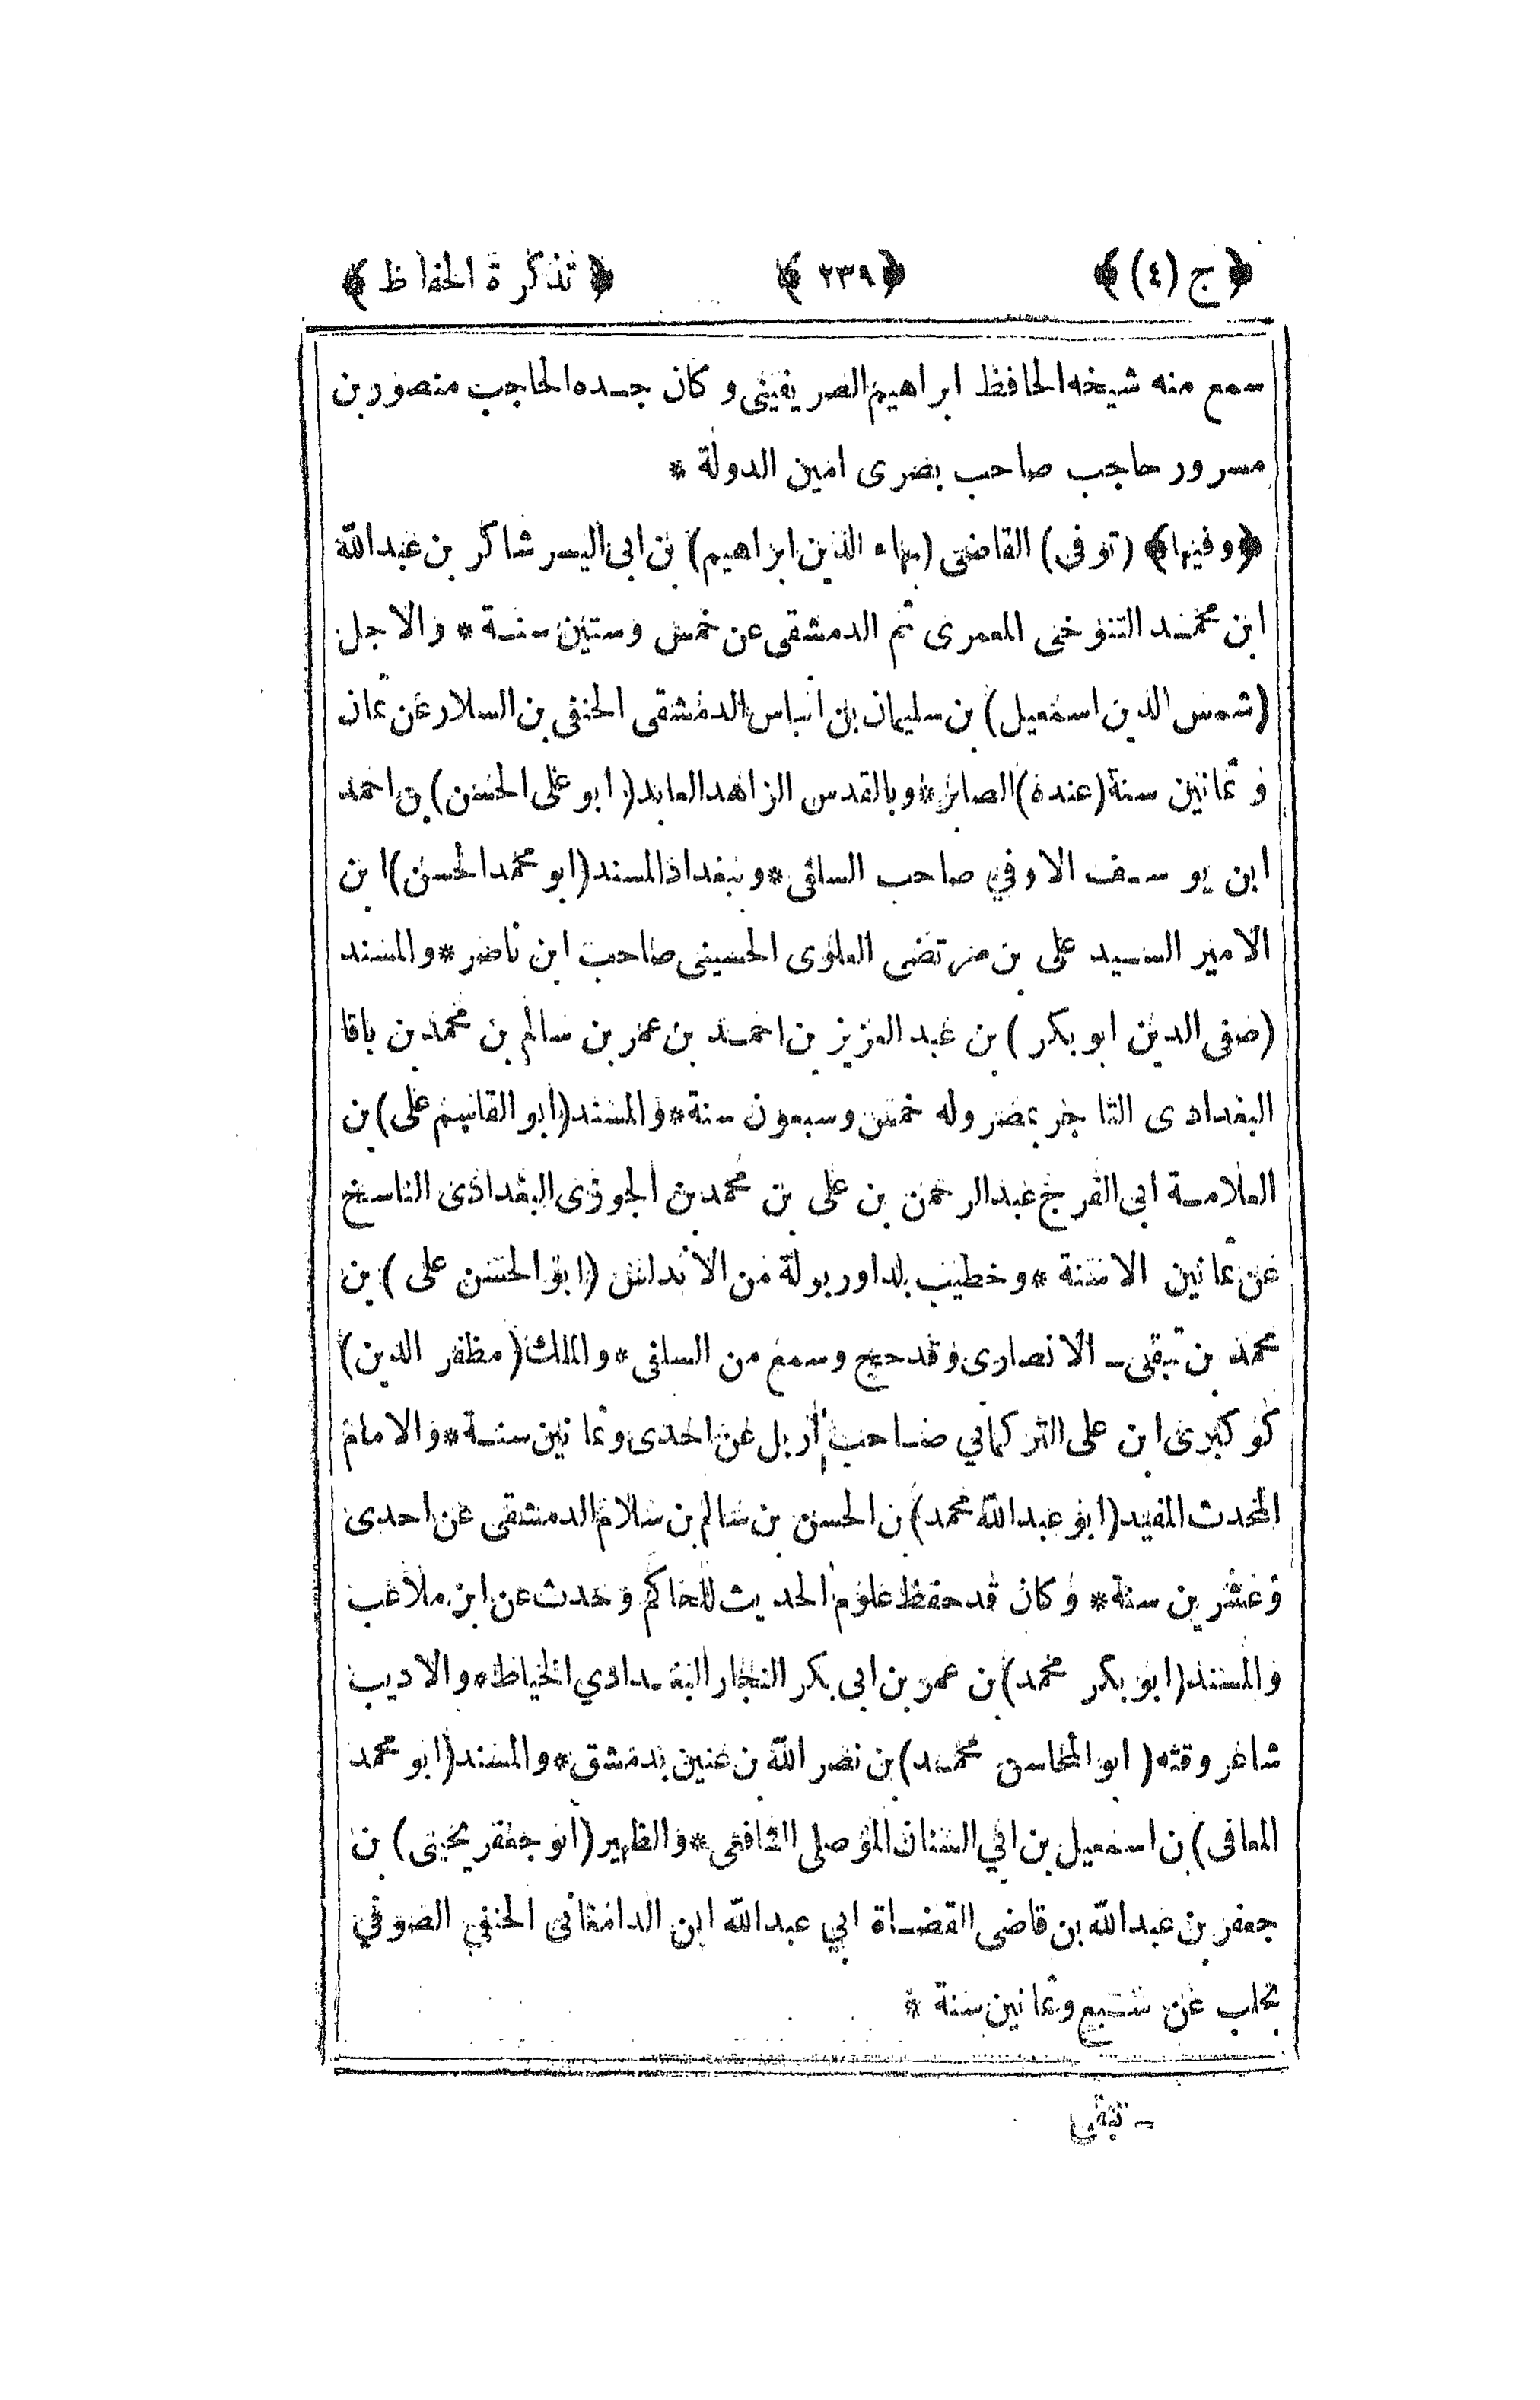 ﴿ج (٤)﴾ ﴿٢٣٩﴾ ﴿تذكرة الحفاظ﴾
سمع منه شيخه الحافظ ابراهيم الصريفينى وكان جده الحاجب منصور بن
مسرور حاجب صاحب بصرى امين الدولة *
﴿وفيها﴾ (توفى) القاضى (بهاء الدين ابراهيم) بن ابى اليسر شاكر بن عبدالله
ابن محمد التنوخى المعمرى ثم الدمشقى عن خمس وستين سنة * والاجل
(شمس الدين اسمعيل) بن سليمان بن انباس الدمشقى الحنفى بن السلار عن ثمان
وثمانين سنة (عنده) الصابر * وبالقدس الزاهد العابد (ابو على الحسن) بن احمد
ابن يوسف الاوفي صاحب السلفى * وببغداد المسند (ابو محمد الحسن) ابن
الامير السيد على بن مرتضى العلوى الحسينى صاحب ابن ناصر * والمسند
(صفى الدين ابو بكر) بن عبد العزيز بن احمد بن عمر بن سالم بن محمد بن باقا
البغدادى التاجر بمصر وله خمس وسبعون سنة * والمسند (ابو القاسم على) بن
العلامة ابى الفرج عبد الرحمن بن على بن محمد بن الجوزى البغدادى الناسخ
عن ثمانين الا سنة * وخطيب بلد اوربولة من الاندلس (ابو الحسن على) بن
محمد بن تبقى ـ الانصارى وقد حج وسمع من السلفى * والملك (مظفر الدين)
كوكبرى ابن على التركماني صاحب إربل عن احدى وثمانين سنة * والامام
المحدث المفيد (ابو عبدالله محمد) بن الحسن بن سالم بن سلام الدمشقى عن احدى
وعشرين سنة * وكان قد حفظ علوم الحديث للحاكم وحدث عن ابن ملاعب
والمسند (ابو بكر محمد) بن عمر بن ابى بكر النجار البغدادي الخياط * والاديب
شاعر وقته (ابو المحاسن محمد) بن نصر الله بن عنين بدمشق * والمسند (ابو محمد
المعافى) بن اسمعيل بن ابي السنان الموصلى الشافعى * والظهير (ابو جعفر يحيى) بن
جعفر بن عبدالله بن قاضى القضاة ابي عبدالله ابن الدامغانى الحنفي الصوفي
بحلب عن سبع وثمانين سنة *
ـ تبقى